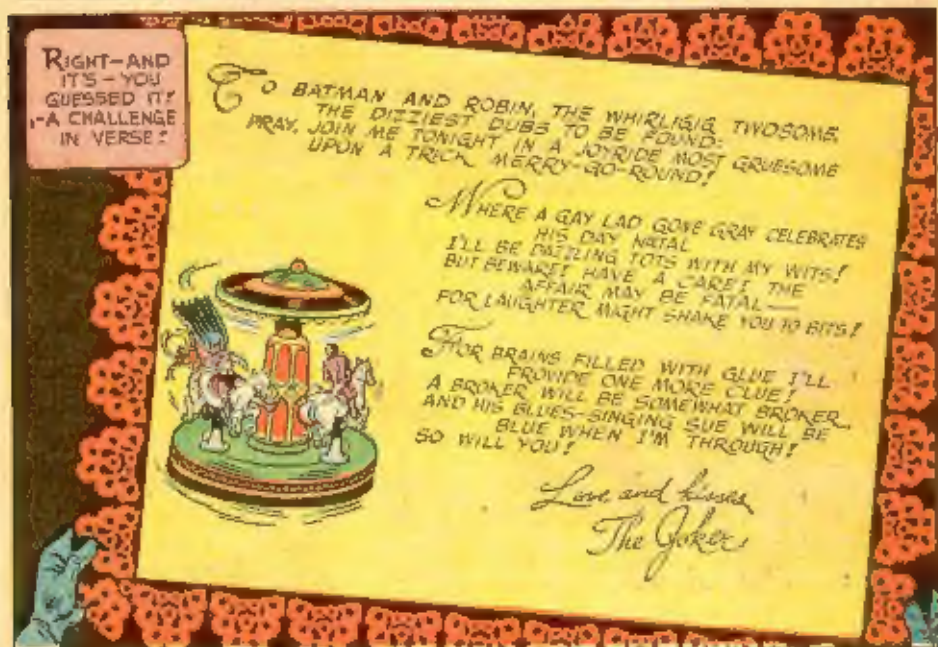 RIGHT-AND
IT'S-YOU
GUESSED IT!
-A CHALLENGE
IN VERSE!
TO BATMAN AND ROBIN, THE WHIRLIGIG TWOSOME,
THE DIZZIEST DUBS TO BE FOUND:
PRAY, JOIN ME TONIGHT IN A JOYRIDE MOST GRUESOME
UPON A TRICK MERRY-GO-ROUND!
WHERE A GAY LAD GONE GRAY CELEBRATES
HIS DAY NATAL
I'LL BE DAZZLING TOTS WITH MY WITS!
BUT BEWARE! HAVE A CARE! THE
AFFAIR MAY BE FATAL—
FOR LAUGHTER MIGHT SHAKE YOU TO BITS!
FOR BRAINS FILLED WITH GLUE I'LL
PROVIDE ONE MORE CLUE!
A BROKER WILL BE SOMEWHAT BROKER,
AND HIS BLUES-SINGING SUE WILL BE
BLUE WHEN I'M THROUGH!
SO WILL YOU!
Love and kisses,
The Joker